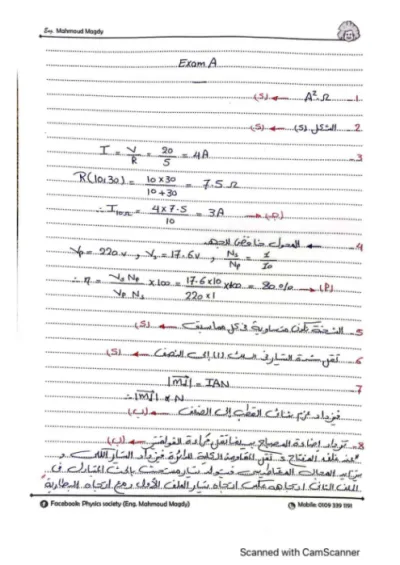 Eng. Mahmoud Magdy
Exam A
1- A².Ω ← (د)
2- الشكل (د) ← (د)
3-
I = V/R = 20/5 = 4A
R(10,30) = 10×30/10+30 = 7.5 Ω
∴ I10Ω = 4×7.5/10 = 3A → (P)
4- ← المحول خافض للجهد
Vp = 220 v , Vs = 17.6 v , Ns/Np = 1/10
∴ η = Vs Np/Vp Ns ×100 = 17.6×10/220×1 ×100 = 80% → (P)
5- الشحنة متساوية في كل ← (د)
6- تقل شدة التيار في إلى النصف ← (د)
7-
|md| = IAN
∴ |md| ∝ N
فيزداد عزم ثنائي القطب إلى الضعف ← (ب)
8- تزداد إضاءة المصباح بينما تقل قراءة الفولتميتر ← (ب)
غلق المفتاح تقل المقاومة الكلية للدائرة فيزداد التيار الكلي و
يزداد المجال المغناطيسي فيتولد تيار مستحث بالحث المتبادل في
الملف الثاني اتجاهه عكس اتجاه تيار الملف الأول اتجاه البطارية
Facebook: Physics society (Eng. Mahmoud Magdy)
Mobile: 0109 339 1191
Scanned with CamScanner